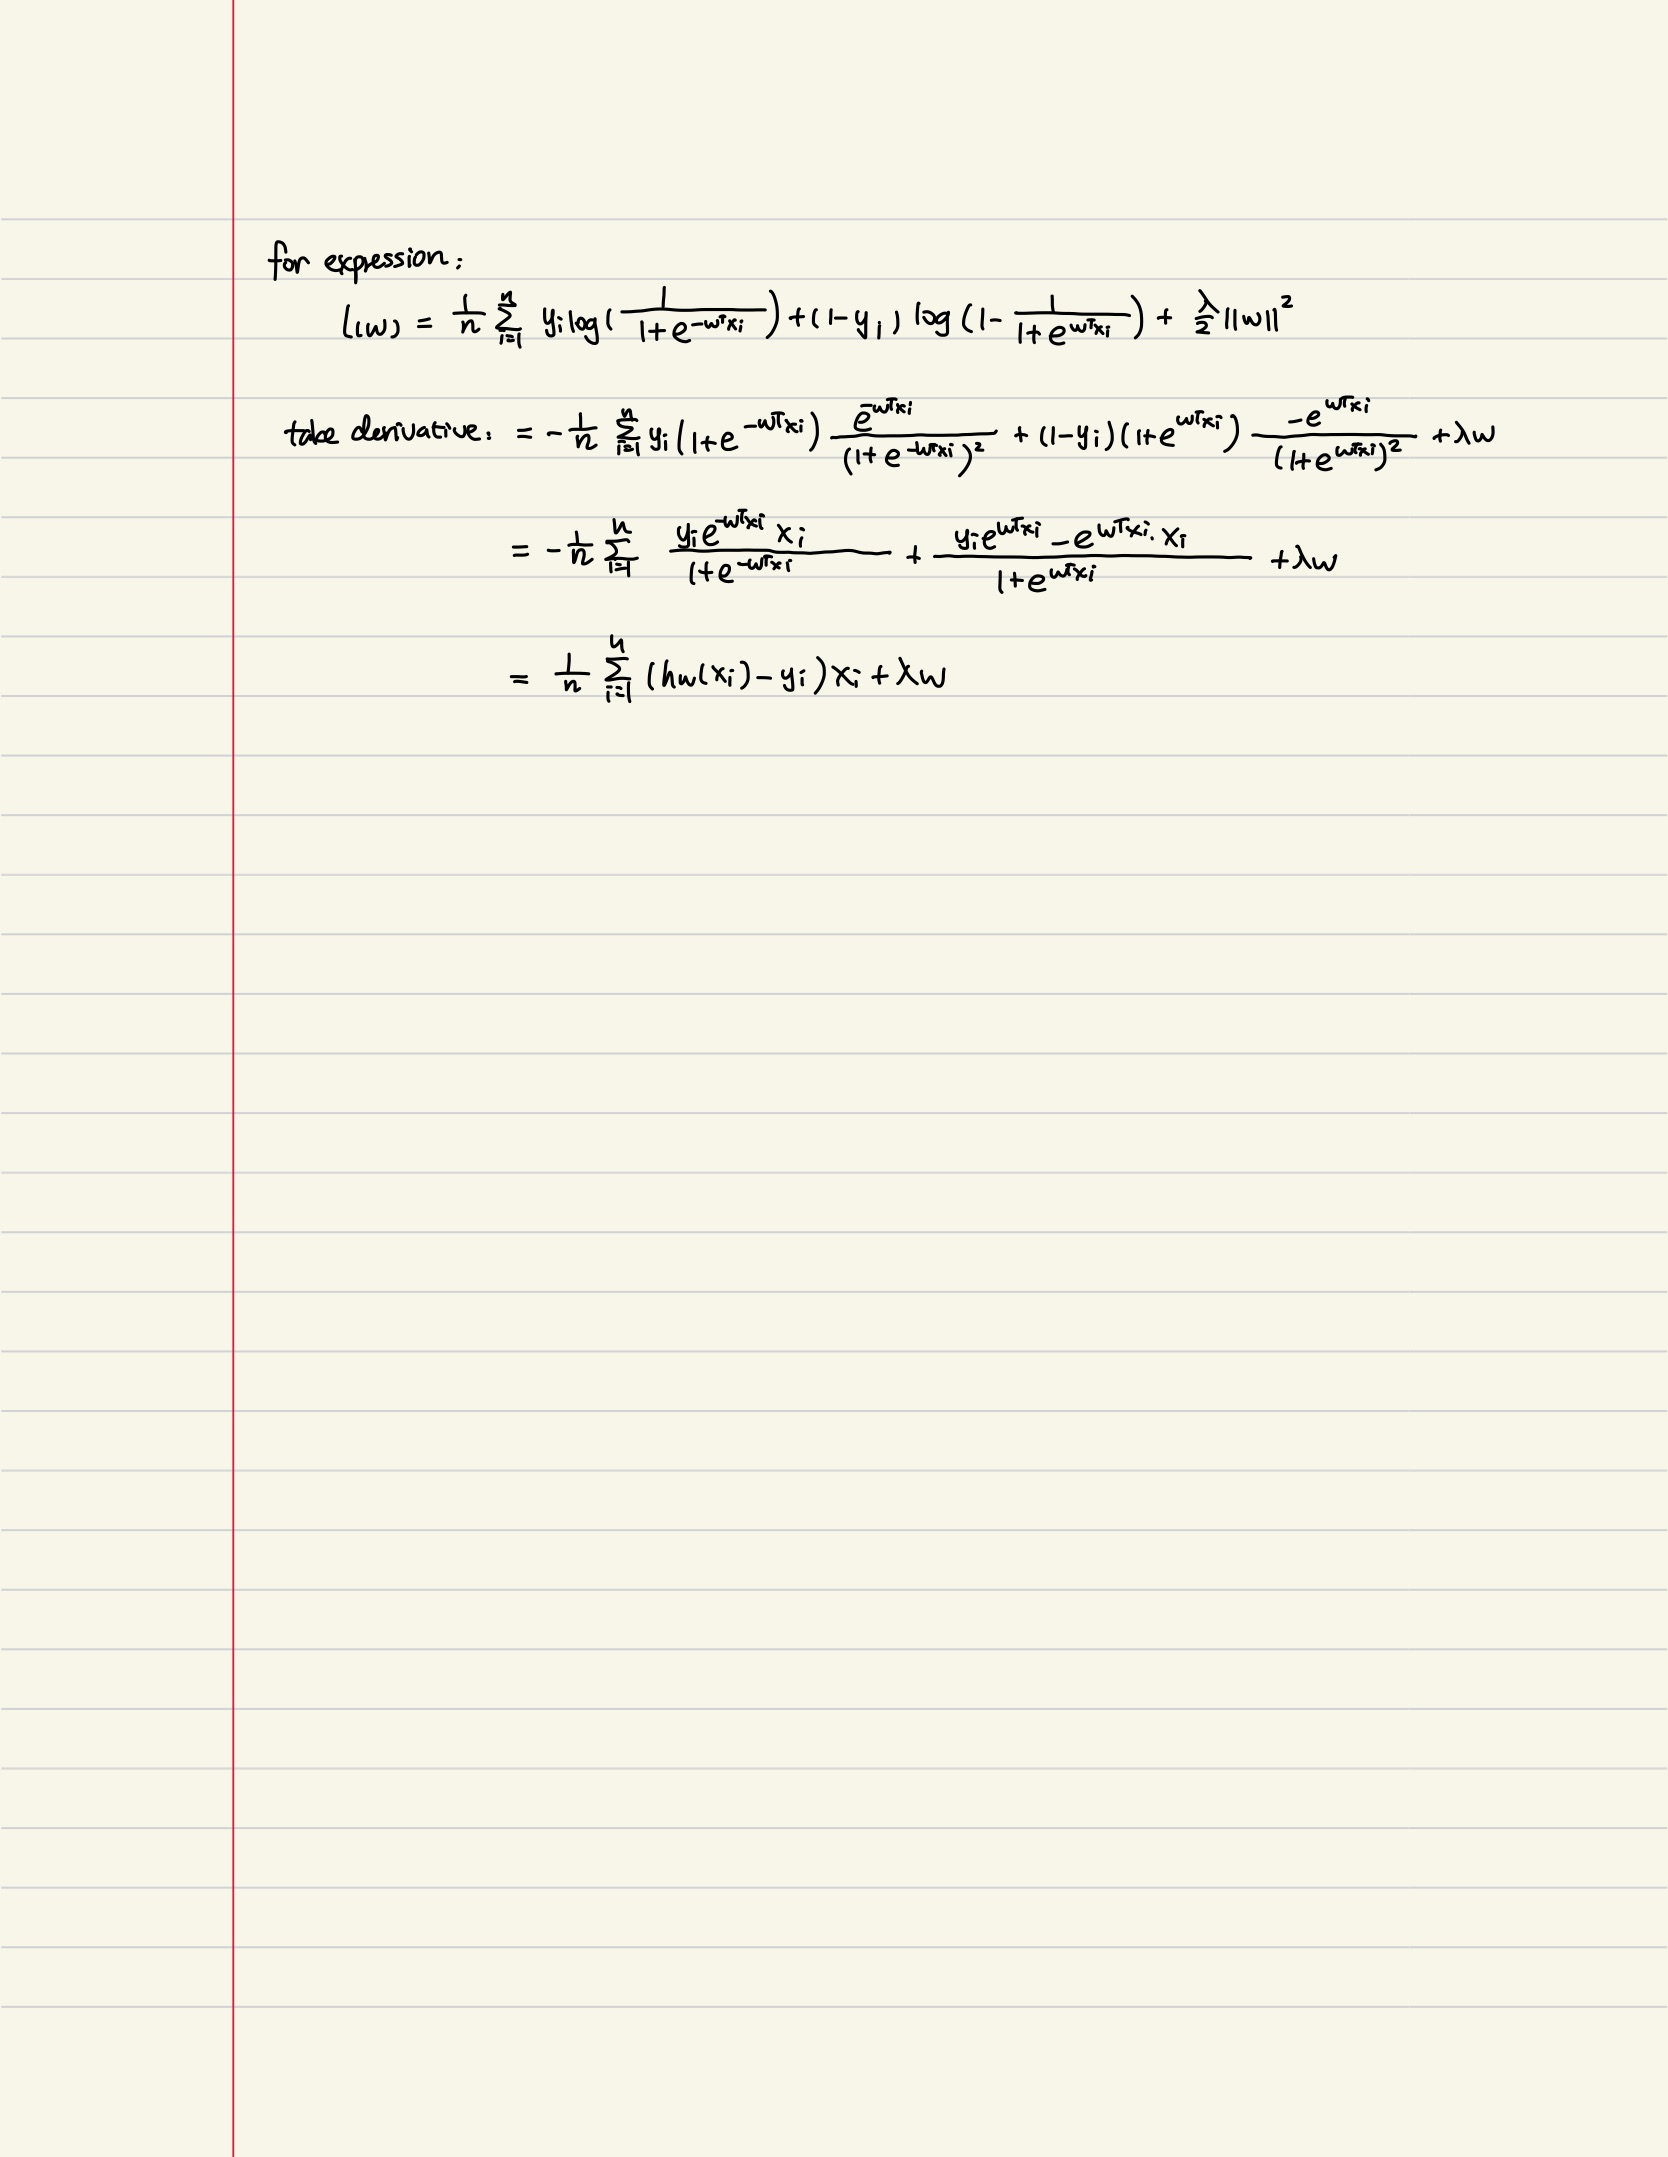 for expression:
L(w) = 1/n Σ_{i=1}^{n} y_i log( 1/(1+e^{-w^T x_i}) ) + (1-y_i) log (1- 1/(1+e^{w^T x_i}) ) + λ/2 ||w||^2
take derivative: = - 1/n Σ_{i=1}^{n} y_i (1+e^{-w^T x_i}) e^{-w^T x_i}/(1+e^{-w^T x_i})^2 + (1-y_i)(1+e^{w^T x_i}) -e^{w^T x_i}/(1+e^{w^T x_i})^2 + λw
= - 1/n Σ_{i=1}^{n} y_i e^{-w^T x_i} x_i/(1+e^{-w^T x_i}) + (y_i e^{w^T x_i} - e^{w^T x_i} · x_i)/(1+e^{w^T x_i}) + λw
= 1/n Σ_{i=1}^{n} (hw(x_i) - y_i) x_i + λw